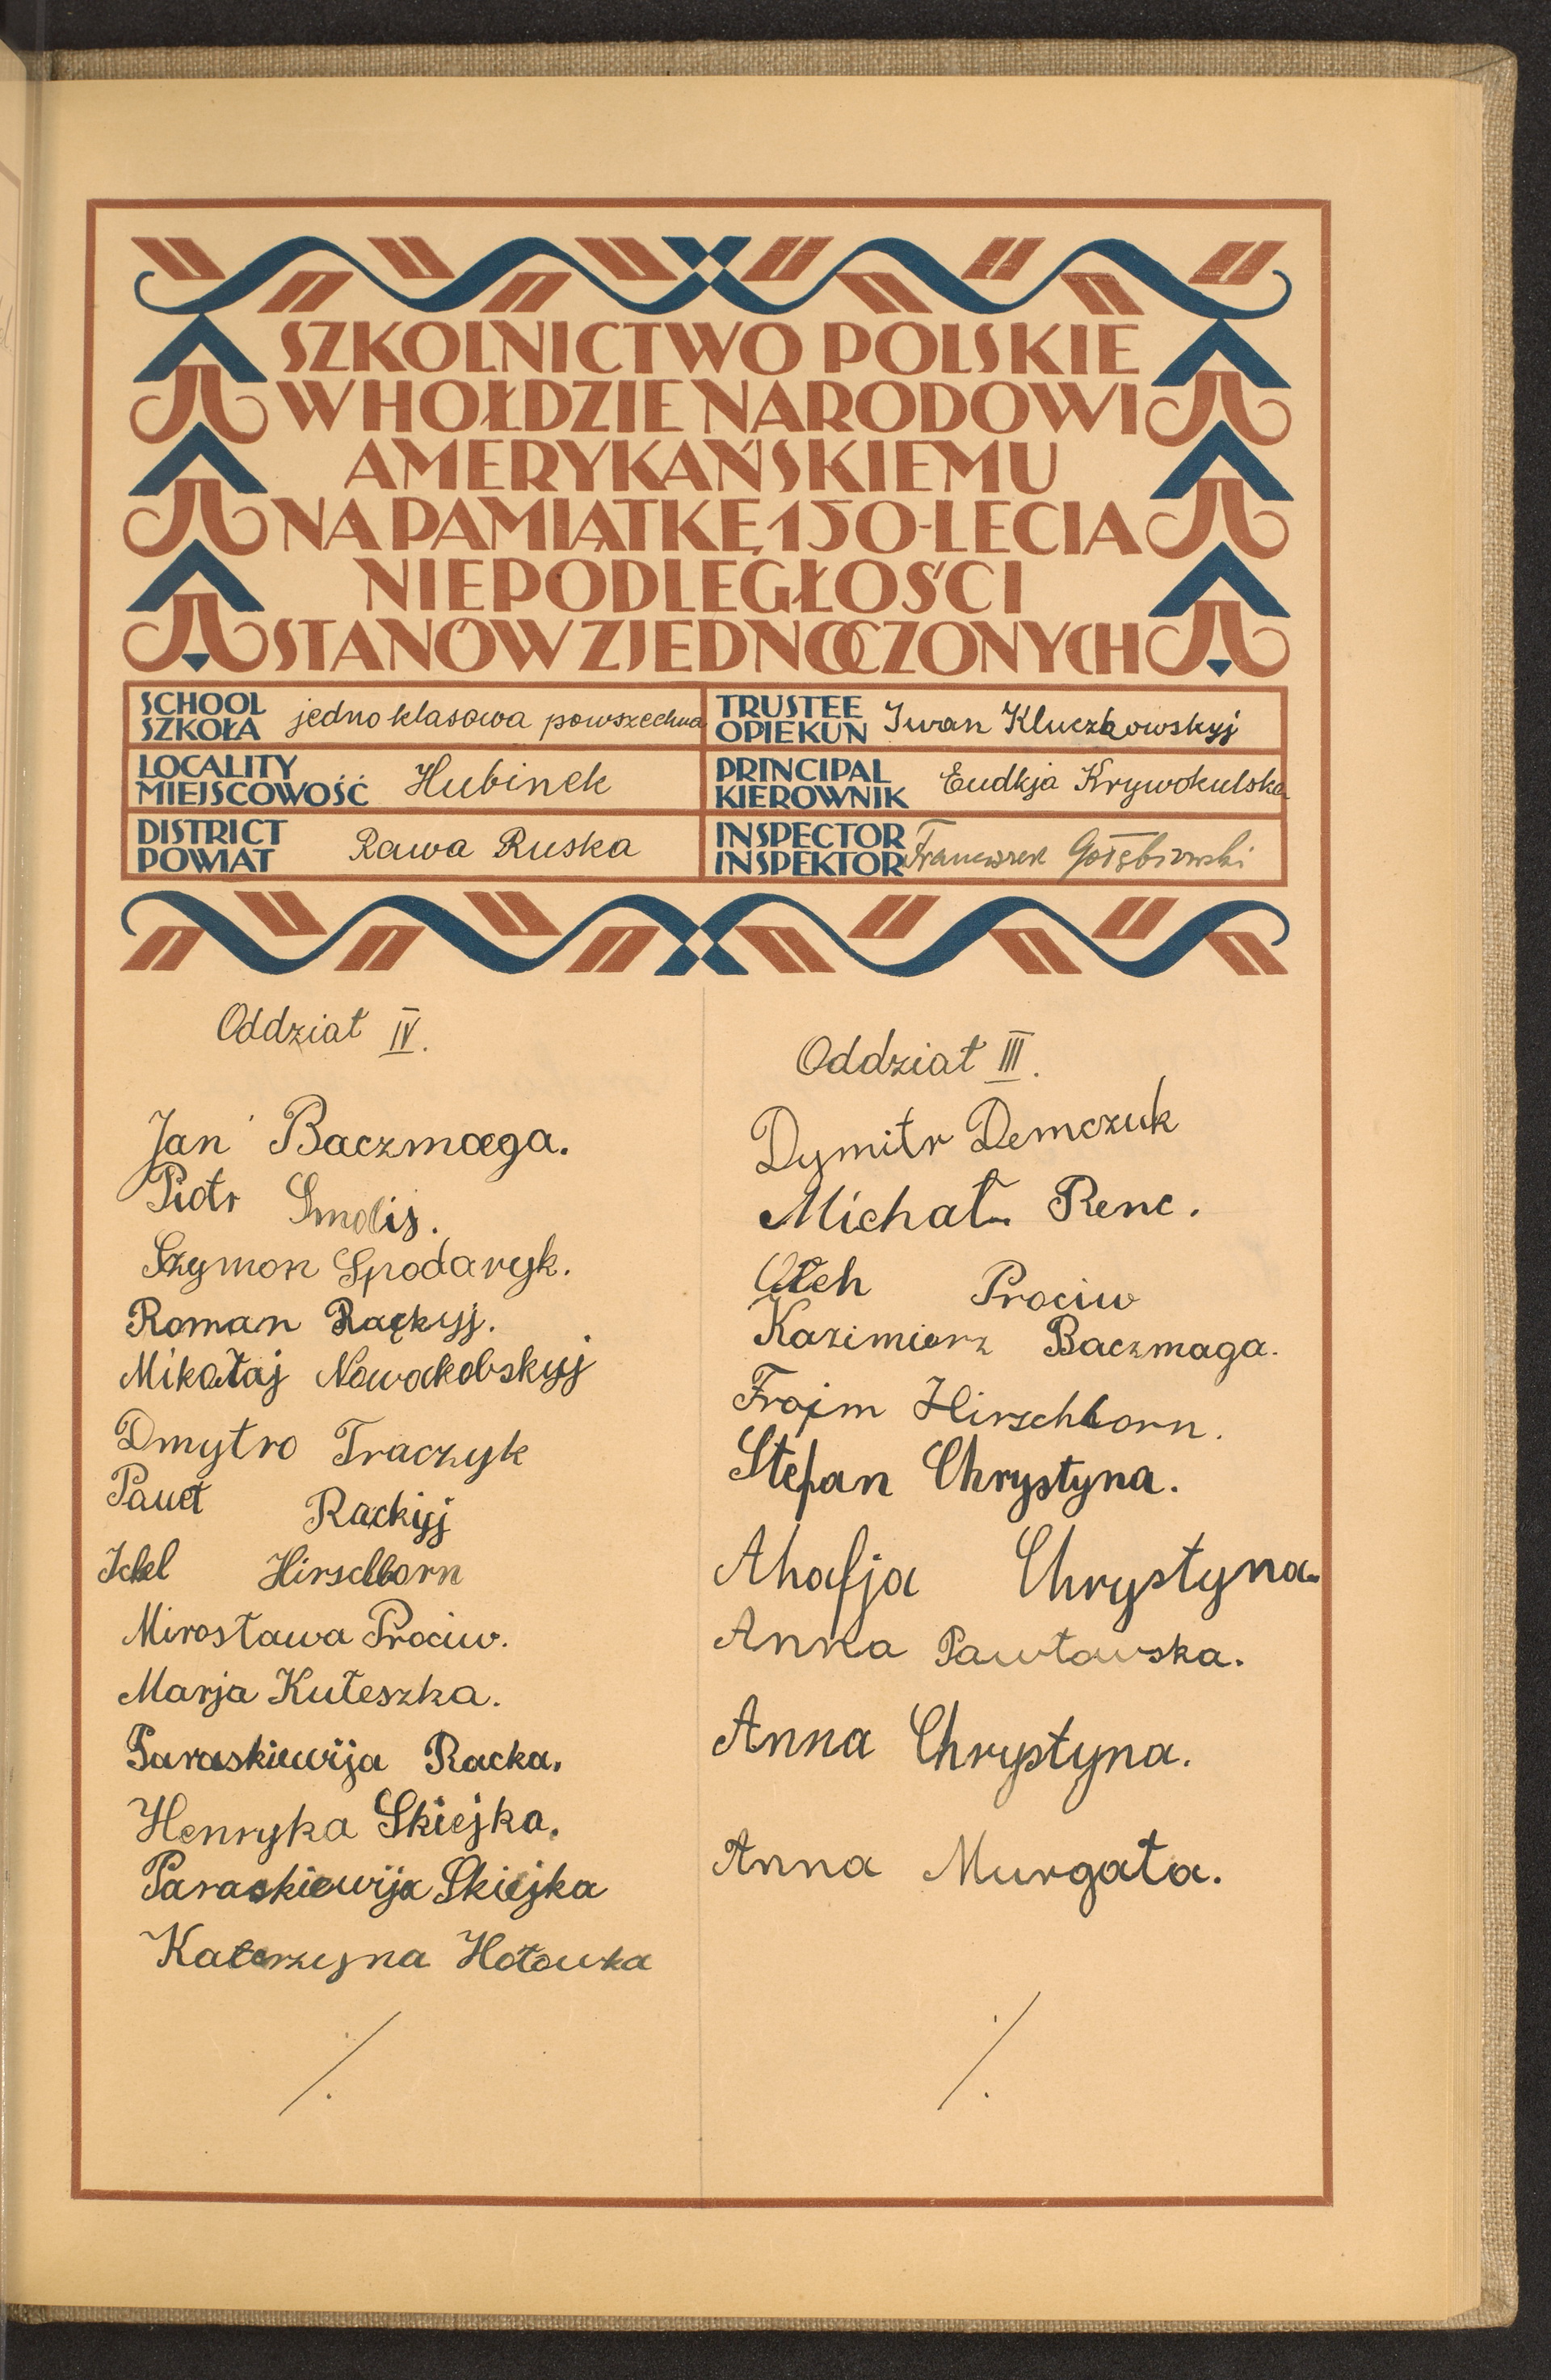 SZKOLNICTWO POLSKIE
W HOŁDZIE NARODOWI
AMERYKAŃSKIEMU
NA PAMIĄTKĘ 150-LECIA
NIEPODLEGŁOŚCI
STANÓW ZJEDNOCZONYCH
SCHOOL
SZKOŁA jednoklasowa powszechna
TRUSTEE
OPIEKUN Iwan Kluczkowskyj
LOCALITY
MIEJSCOWOŚĆ Hubinek
PRINCIPAL
KIEROWNIK Eudkja Krywokulska
DISTRICT
POWIAT Rawa Ruska
INSPECTOR
INSPEKTOR Franciszek Gołębiowski
Oddział IV.
Jan Baczmaga.
Piotr Smolis.
Szymon Spodaryk.
Roman Rackyj.
Mikołaj Nowakobskyj
Dmytro Traczyk
Paweł Rackyj
Ickel Hirschborn
Mirosława Prociw.
Marja Kułeszka.
Paraskiewija Racka.
Henryka Skiejka.
Paraskiewija Skiejka
Katarzyna Hołowka
./.
Oddział III.
Dymitr Demczuk
Michał Renc.
Ołeh Prociw
Kazimierz Baczmaga.
Frojm Hirschborn.
Stefan Chrystyna.
Ahafja Chrystyna.
Anna Pawłowska.
Anna Chrystyna.
Anna Murgała.
./.